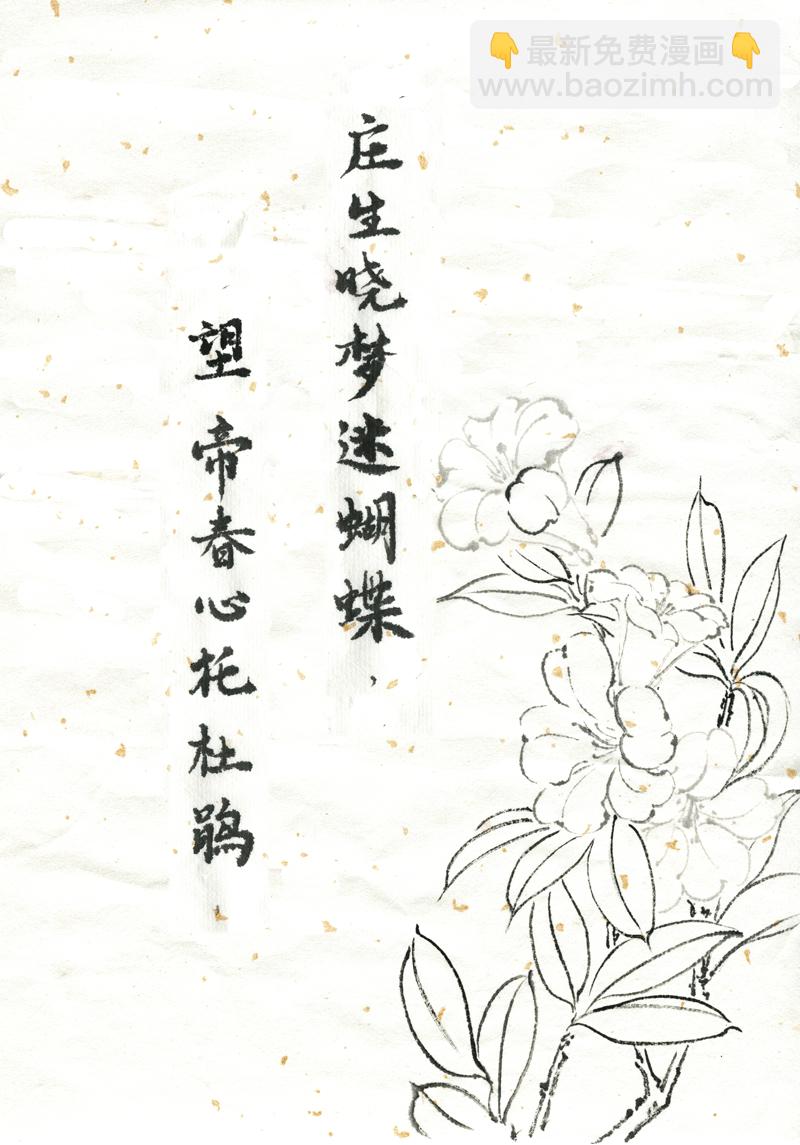 👇最新免费漫画👇
www.baozimh.com
庄生晓梦迷蝴蝶，
望帝春心托杜鹃